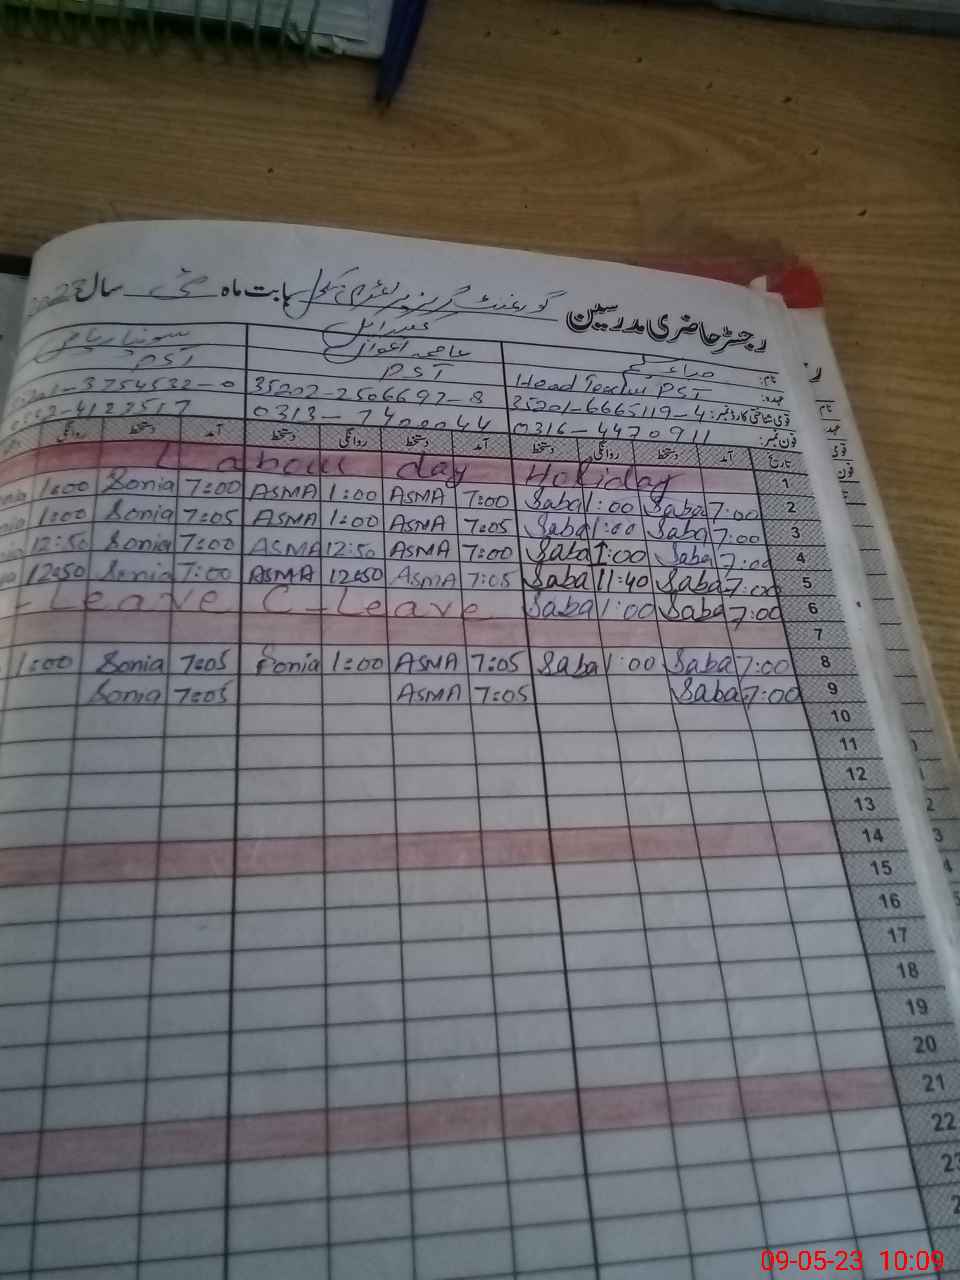 رجسٹر حاضری مدرسین گورنمنٹ گرلز پرائمری سکول بابت ماہ مئی سال 2023
نام: صباء
عہدہ: Head Teacher PST PST PST
قومی شناختی کارڈ نمبر: 35201-6665119-4 35202-2506697-8 3754532-0
فون نمبر: 0316-4470911 0313-7400044 4127517
تاریخ آمد دستخط روانگی دستخط آمد دستخط روانگی دستخط آمد دستخط روانگی
1 Labour day Holiday
1:00 Sonia 7:00 ASMA 1:00 ASMA 7:00 Saba 1:00 Saba 7:00 2
1:00 Sonia 7:05 ASMA 1:00 ASMA 7:05 Saba 1:00 Saba 7:00 3
12:50 Sonia 7:00 ASMA 12:50 ASMA 7:00 Saba 1:00 Saba 7:00 4
12:50 Sonia 7:00 ASMA 12:50 ASMA 7:05 Saba 11:40 Saba 7:00 5
- Leave C - Leave Saba 1:00 Saba 7:00 6
7
1:00 Sonia 7:05 Sonia 1:00 ASMA 7:05 Saba 1:00 Saba 7:00 8
Sonia 7:05 ASMA 7:05 Saba 7:00 9
10
11
12
13
14
15
16
17
18
19
20
21
22
23
09-05-23 10:09